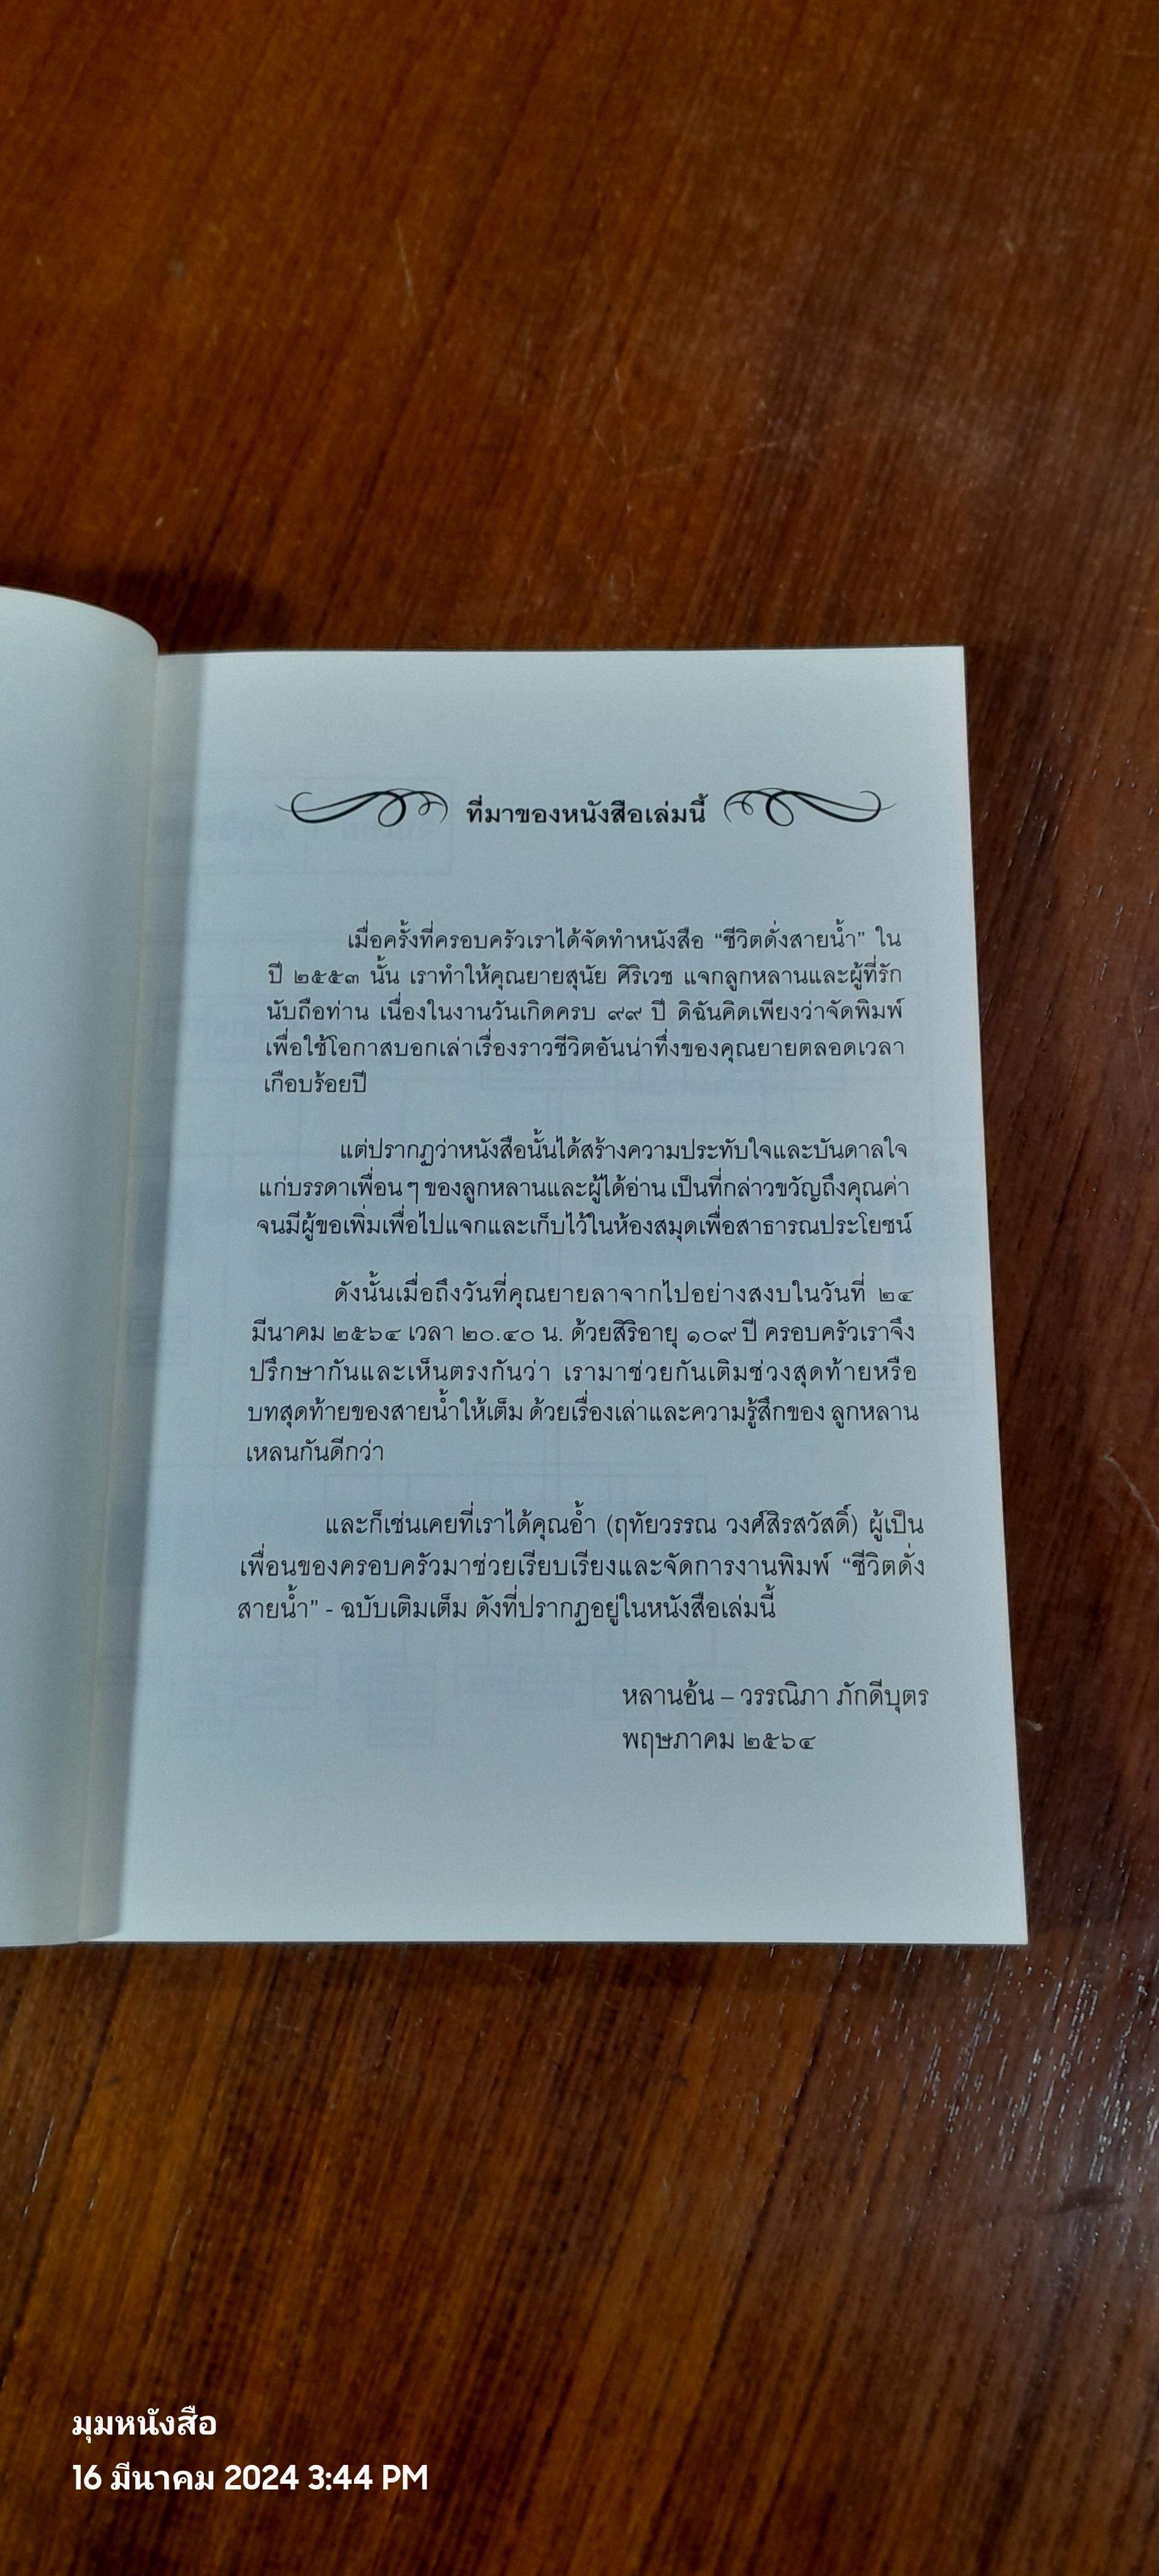 ที่มาของหนังสือเล่มนี้
เมื่อครั้งที่ครอบครัวเราได้จัดทำหนังสือ “ชีวิตดั่งสายน้ำ” ใน
ปี ๒๕๕๓ นั้น เราทำให้คุณยายสุนัย ศิริเวช แจกลูกหลานและผู้ที่รัก
นับถือท่าน เนื่องในงานวันเกิดครบ ๙๙ ปี ดิฉันคิดเพียงว่าจัดพิมพ์
เพื่อใช้โอกาสบอกเล่าเรื่องราวชีวิตอันน่าทึ่งของคุณยายตลอดเวลา
เกือบร้อยปี
แต่ปรากฏว่าหนังสือนั้นได้สร้างความประทับใจและบันดาลใจ
แก่บรรดาเพื่อน ๆ ของลูกหลานและผู้ได้อ่าน เป็นที่กล่าวขวัญถึงคุณค่า
จนมีผู้ขอเพิ่มเพื่อไปแจกและเก็บไว้ในห้องสมุดเพื่อสาธารณประโยชน์
ดังนั้นเมื่อถึงวันที่คุณยายลาจากไปอย่างสงบในวันที่ ๒๔
มีนาคม ๒๕๖๔ เวลา ๒๐.๔๐ น. ด้วยสิริอายุ ๑๐๙ ปี ครอบครัวเราจึง
ปรึกษากันและเห็นตรงกันว่า เรามาช่วยกันเติมช่วงสุดท้ายหรือ
บทสุดท้ายของสายน้ำให้เต็ม ด้วยเรื่องเล่าและความรู้สึกของ ลูกหลาน
เหลนกันดีกว่า
และก็เช่นเคยที่เราได้คุณอ้ำ (ฤทัยวรรณ วงศ์สิรสวัสดิ์) ผู้เป็น
เพื่อนของครอบครัวมาช่วยเรียบเรียงและจัดการงานพิมพ์ “ชีวิตดั่ง
สายน้ำ” - ฉบับเติมเต็ม ดังที่ปรากฏอยู่ในหนังสือเล่มนี้
หลานอ้น – วรรณิภา ภักดีบุตร
พฤษภาคม ๒๕๖๔
มุมหนังสือ
16 มีนาคม 2024 3:44 PM